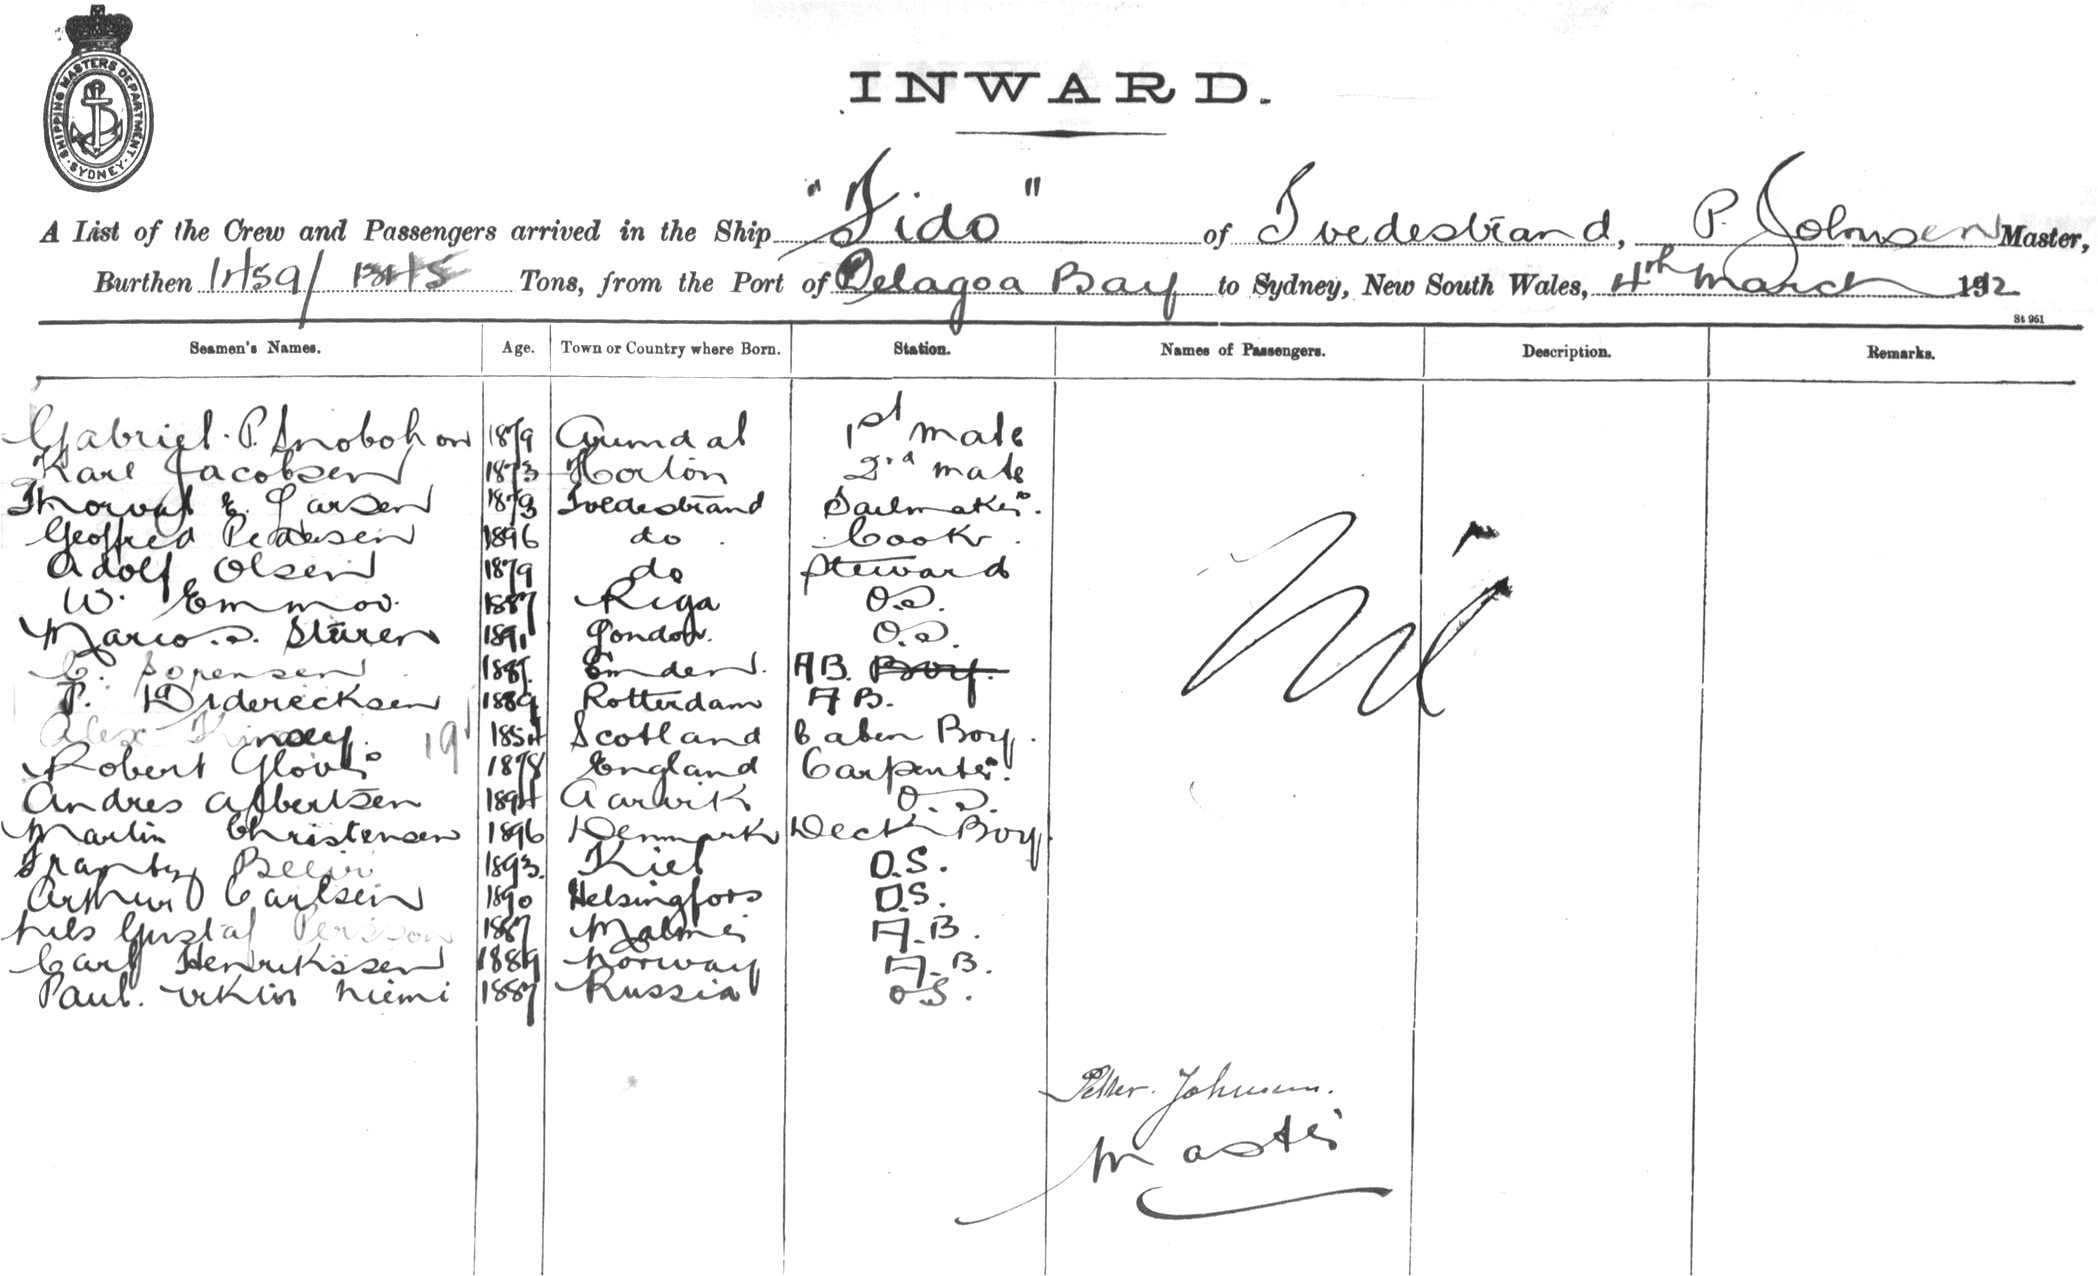 SHIPPING MASTERS DEPARTMENT. SYDNEY
INWARD.
A List of the Crew and Passengers arrived in the Ship "Fido" of Tvedestrand, P. Johnsen Master,
Burthen 1459/1345 Tons, from the Port of Delagoa Bay to Sydney, New South Wales, 4th March 1912
St 961
Seamen's Names. Age. Town or Country where Born. Station. Names of Passengers. Description. Remarks.
Gabriel P. 1879 Arundal 1st mate
Karl Jacobsen 1873 Horton 2nd mate
Thorvald E. Larsen 1873 Tvedestrand Sailmaker.
Geoffred Pedersen 1896 do Cook
Adolf Olsen 1879 do Steward
W. Emmov. 1887 Riga O.S.
Marcos. S. Sturen 1891 London. O.S.
C. Sorensen 188 Emden. AB. Boy.
P. Diderecksen 1889 Rotterdam AB.
Alex Kinsey. 19 Scotland Caben Boy.
Robert Glover 1878 England Carpenter.
Andres Albertsen 1894 Aarvik O.S.
Martin Christensen 1896 Denmark Deck Boy
1893. Kiel O.S.
Arthur Carlsen 1890 Helsingfors O.S.
Nils Gustaf Persson 1887 Malmo A.B.
Carl Henrikssen 1889 Norway A.B.
Paul. Viktor Niemi 1887 Russia O.S.
Nil
Petter. Johnsen.
Master